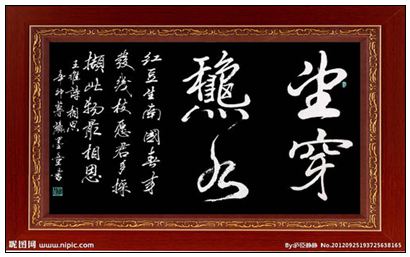 望穿
龝水
红豆生南國春来
發幾枝愿君多採
擷此物最相思
王維詩相思
辛卯
昵图网 www.nipic.com
By: No.20120925193725638165